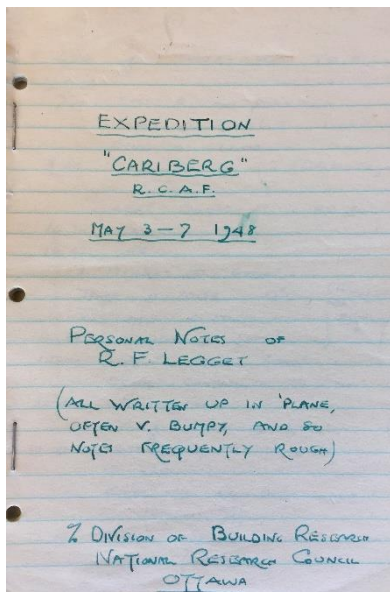 EXPEDITION
"CARIBERG"
R.C.A.F.
MAY 3-7 1948
PERSONAL NOTES OF
R.F. LEGGET
(ALL WRITTEN UP IN 'PLANE,
OFTEN V. BUMPY, AND SO
NOTES FREQUENTLY ROUGH)
% DIVISION OF BUILDING RESEARCH
NATIONAL RESEARCH COUNCIL
OTTAWA